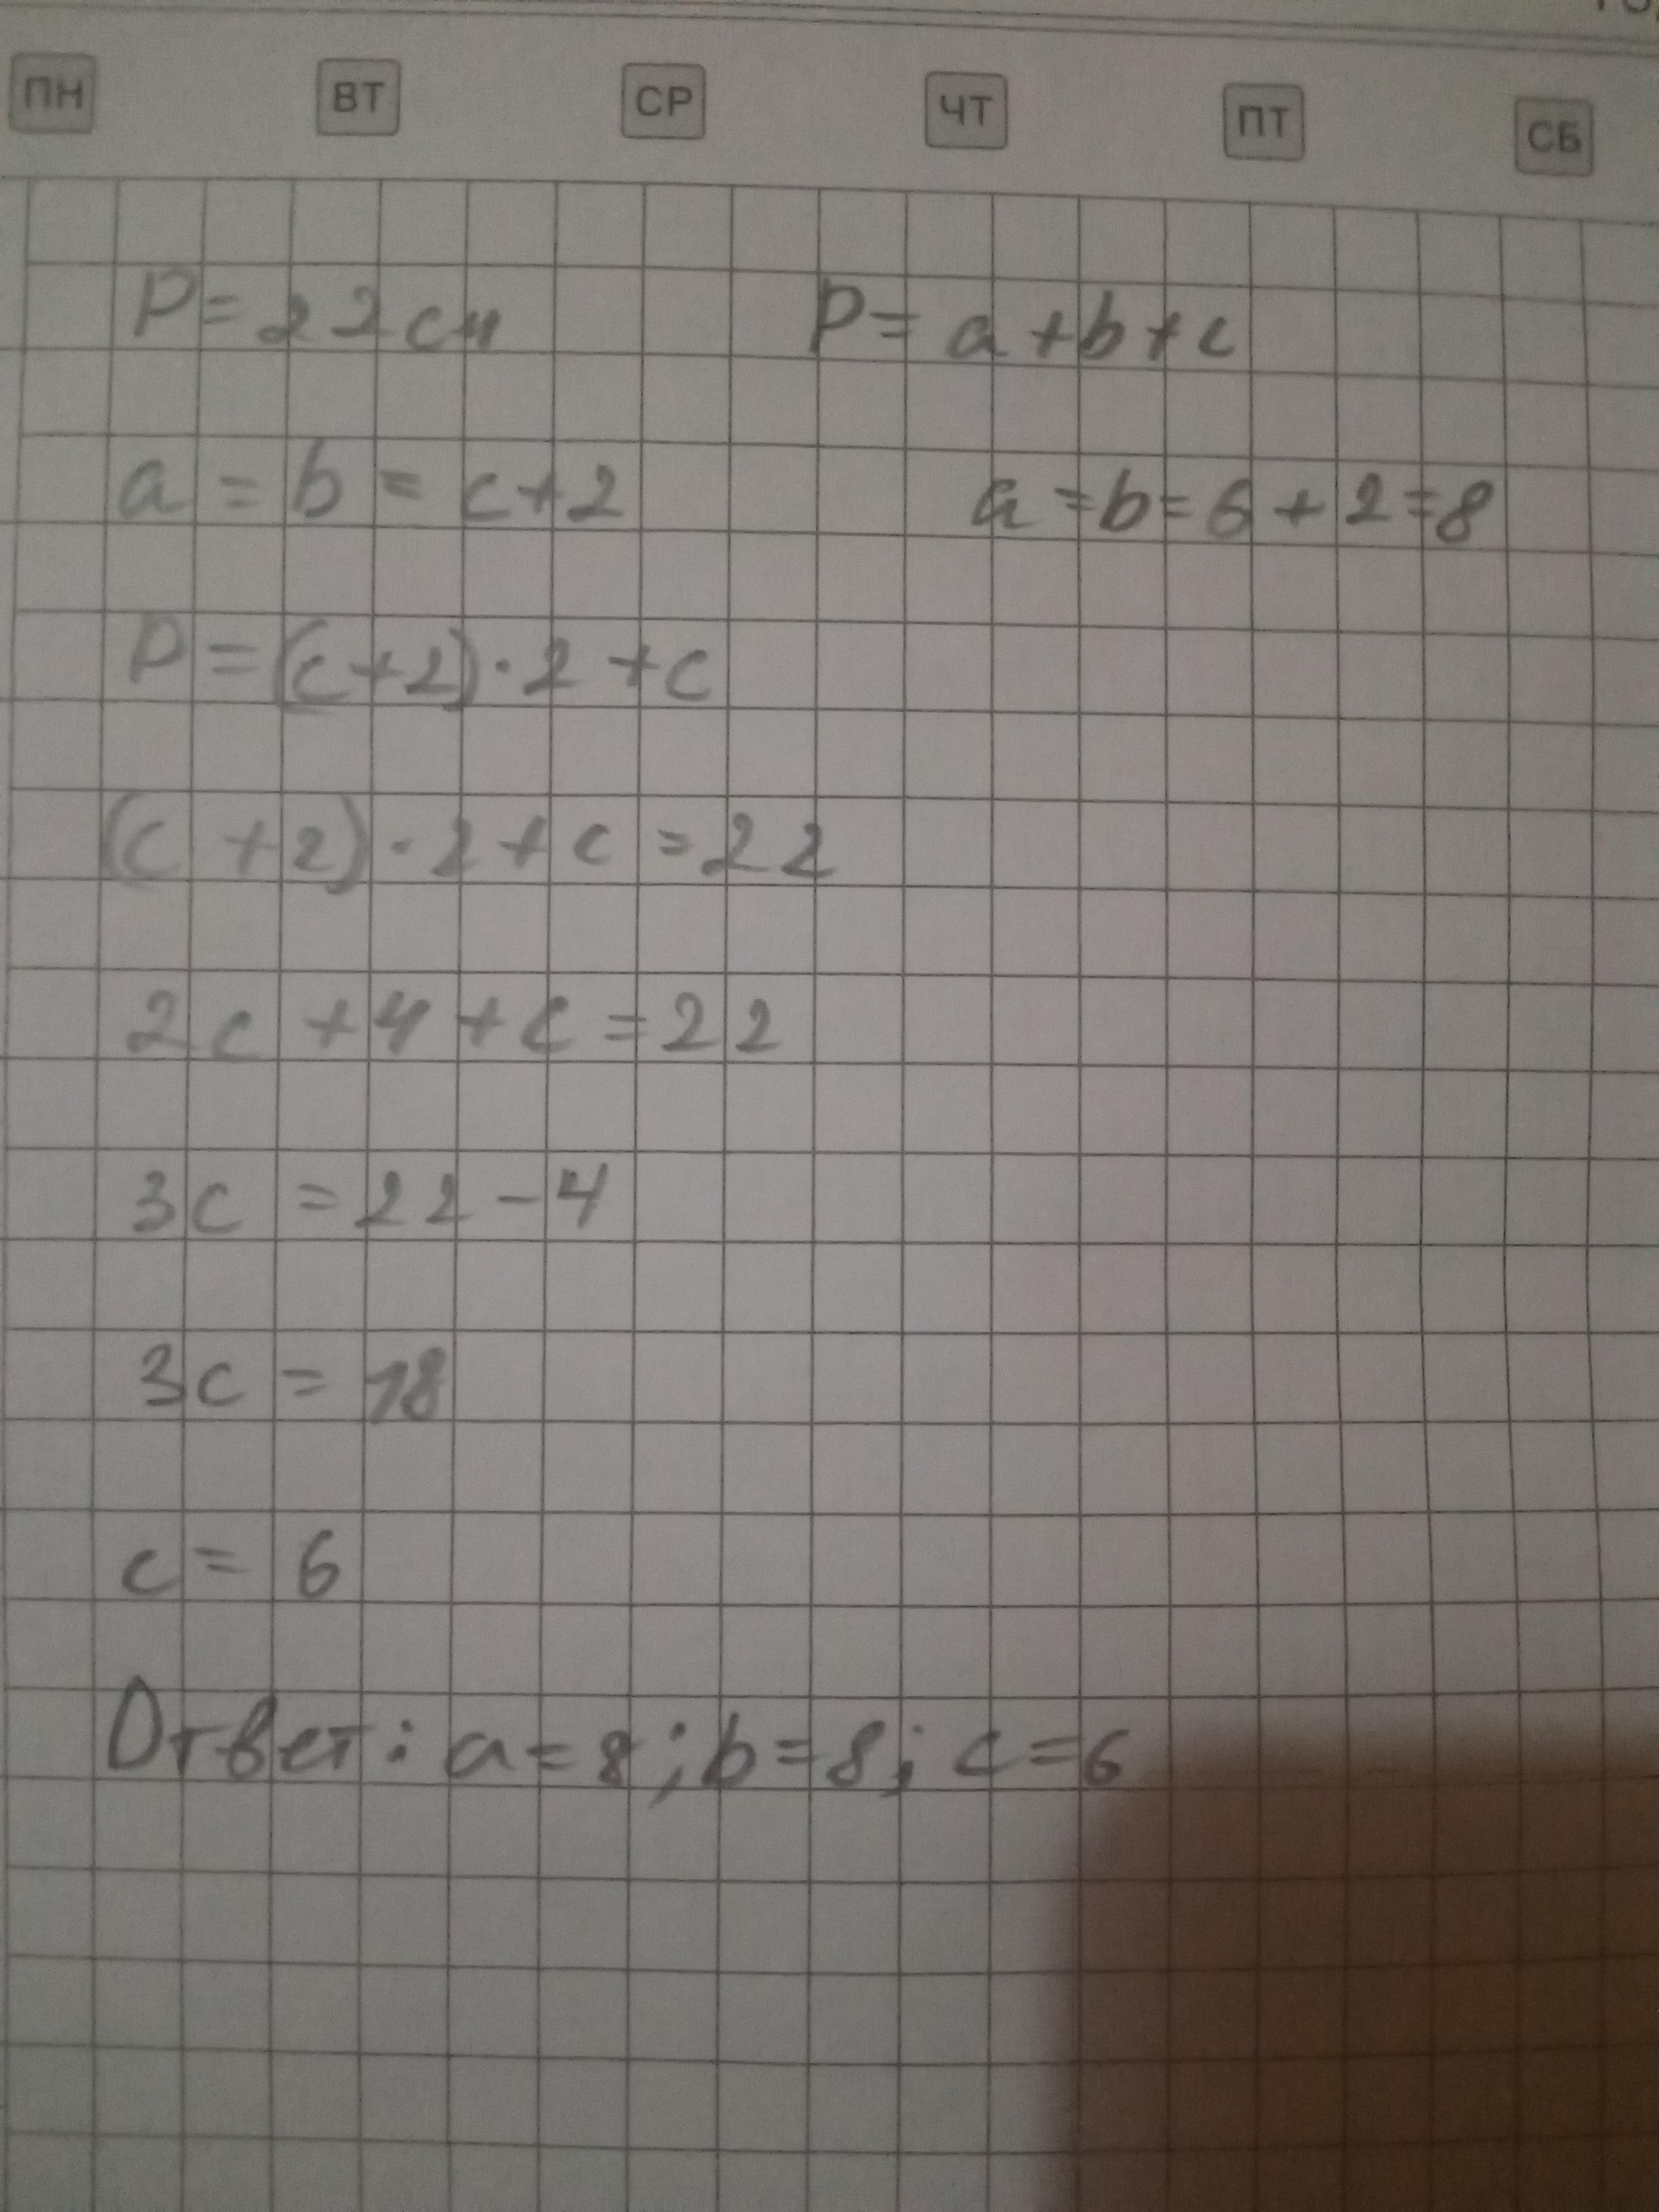 ПН ВТ СР ЧТ ПТ СБ
P = 22 см
P = a + b + c
a = b = c + 2
a = b = 6 + 2 = 8
P = (c + 2) · 2 + c
(c + 2) · 2 + c = 22
2c + 4 + c = 22
3c = 22 - 4
3c = 18
c = 6
Ответ: a = 8; b = 8; c = 6